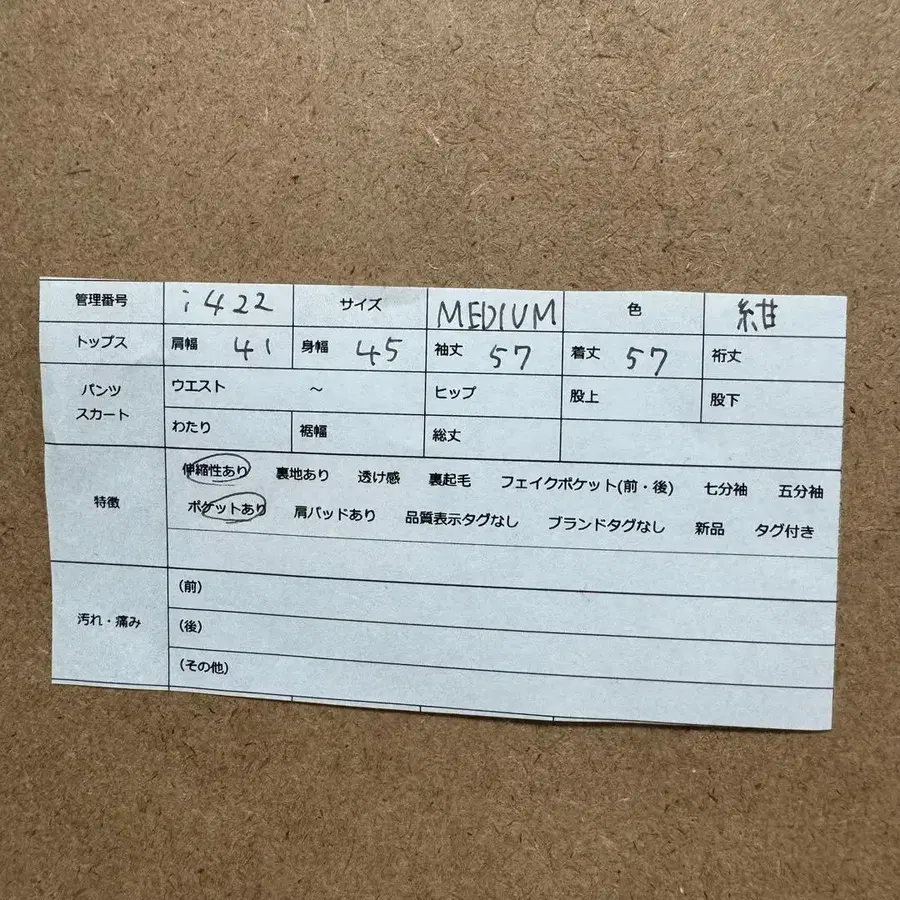 管理番号 i422 サイズ MEDIUM 色 紺
トップス 肩幅 41 身幅 45 袖丈 57 着丈 57 裄丈
パンツ スカート ウエスト ～ ヒップ 股上 股下
わたり 裾幅 総丈
特徴 伸縮性あり 裏地あり 透け感 裏起毛 フェイクポケット(前・後) 七分袖 五分袖
ポケットあり 肩パッドあり 品質表示タグなし ブランドタグなし 新品 タグ付き
汚れ・痛み (前)
(後)
(その他)